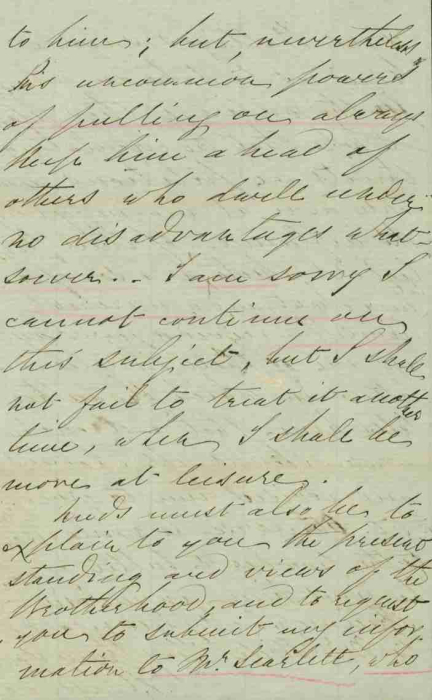 to him; but, nevertheless
his uncommon powers
of pulling on always
keep him ahead of
others who dwell under
no disadvantages what-
soever.. I am sorry I
cannot continue on
this subject, but I shall
not fail to treat it another
time, when I shall be
more at leisure.
must also be to
explain to you the present
standing and views of the
Brotherhood, and to request
you to submit my infor-
mation to Mr. Scarlett, who